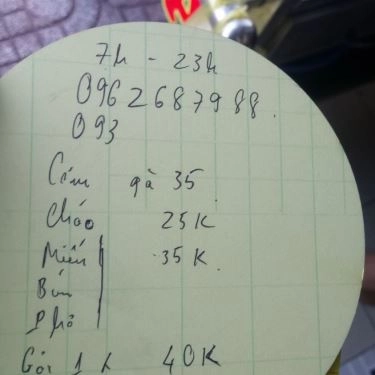 7h - 23h
0962687988.
093
Cơm gà 35.
Cháo 25K
Miến 35K.
Bún
Phở
Gói 1 40K